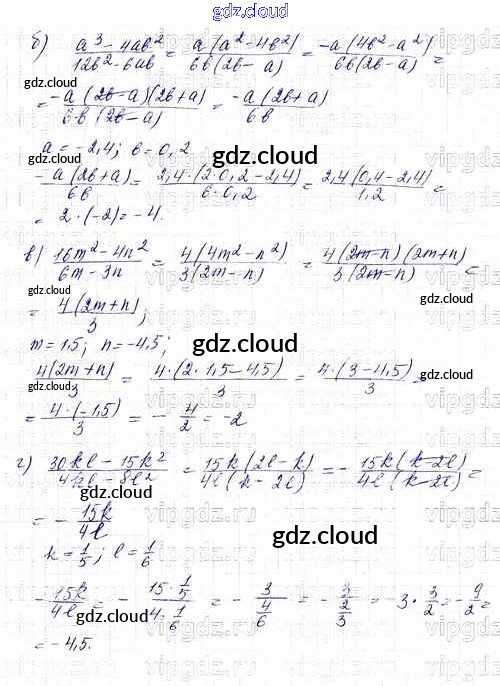 gdz.cloud
б) (a³ - 4ab²)/(12b² - 6ab) = a(a² - 4b²)/(6b(2b - a)) = -a(4b² - a²)/(6b(2b - a)) =
gdz.cloud
= -a(2b - a)(2b + a)/(6b(2b - a)) = -a(2b + a)/(6b)
a = -2,4; b = 0,2
gdz.cloud
-a(2b + a)/(6b) = 2,4·(2·0,2 - 2,4)/(6·0,2) = 2,4(0,4 - 2,4)/1,2 =
= 2·(-2) = -4.
gdz.cloud
в) (16m² - 4n²)/(6m - 3n) = 4(4m² - n²)/(3(2m - n)) = 4(2m - n)(2m + n)/(3(2m - n)) =
= 4(2m + n)/3;
m = 1,5; n = -4,5;
gdz.cloud
4(2m + n)/3 = 4·(2·1,5 - 4,5)/3 = 4·(3 - 4,5)/3 =
= 4·(-1,5)/3 = - 4/2 = -2
г) (30kl - 15k²)/(4kl - 8l²) = 15k(2l - k)/(4l(k - 2l)) = - 15k(k - 2l)/(4l(k - 2l)) =
gdz.cloud
= - 15k/4l
gdz.cloud
k = 1/5; l = 1/6
- 15k/4l = - (15·1/5)/(4·1/6) = - 3/(4/6) = - 3/(2/3) = -3·3/2 = - 9/2 =
gdz.cloud
gdz.cloud
= -4,5.